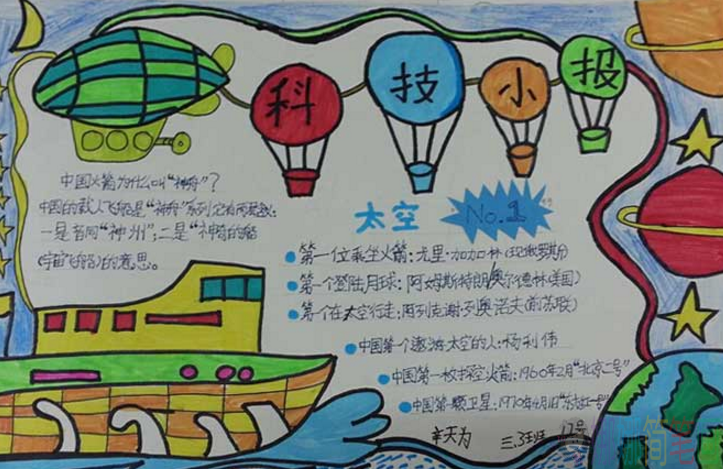 科技小报
中国火箭为什么叫"神舟"?
中国的载人飞船是"神舟"系列,它有两层意:
一是音同"神州";二是"神奇的船
(宇宙飞船)的意思。
太空 No.1
第一位乘坐火箭:尤里·加加林(现俄罗斯)
第一个登陆月球:阿姆斯特朗奥尔德林(美国)
第一个在太空行走:阿列克谢·列奥诺夫(前苏联)
中国第一个遨游太空的人:杨利伟
中国第一枚探空火箭:1960年2月"北京二号"
中国第一颗卫星:1970年4月1日"东方红一号"
辛天为 三.3班 17号
简笔